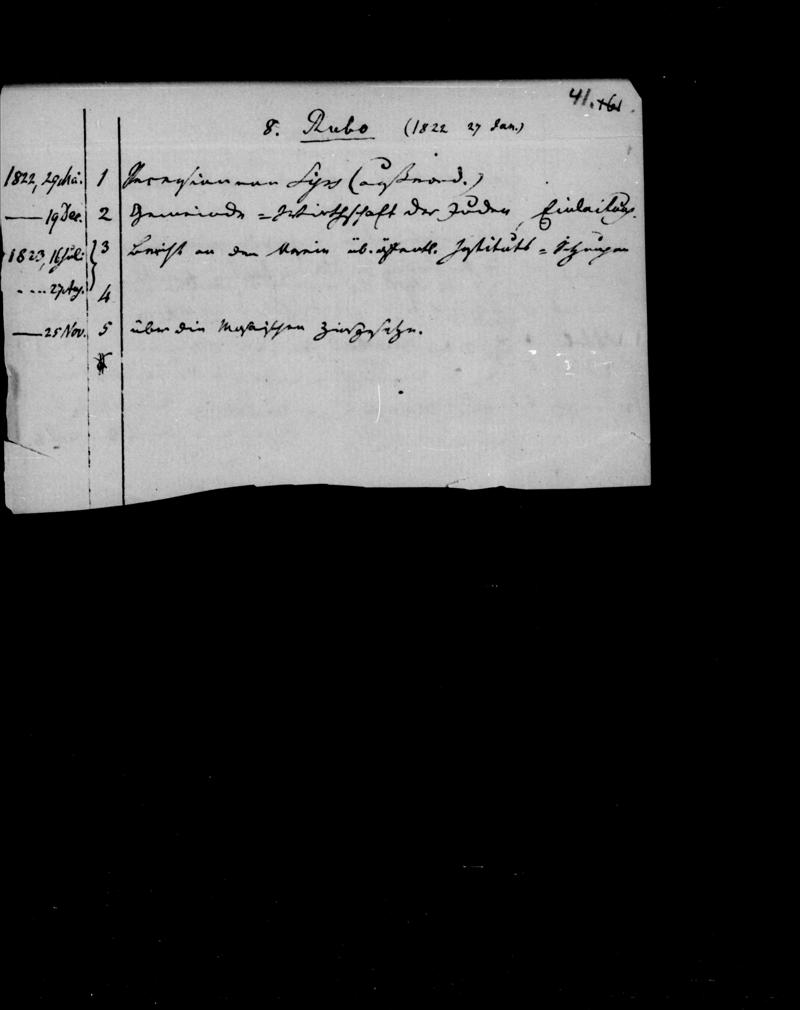 41.
8. Rubo (1822 27 Jan.)
1822, 29 Mai. 1 Recension von (außerord.)
— 19 Dec. 2 Gemeinde = Wirthschaft der Juden, Einleitung.
1823, 16 Jul. 3 Bericht an den Verein üb. öffentl. Instituts = Sitzungen
. . . . 27 Aug. 4
— 25 Nov. 5 über die Mosaischen Zinsgesetze.